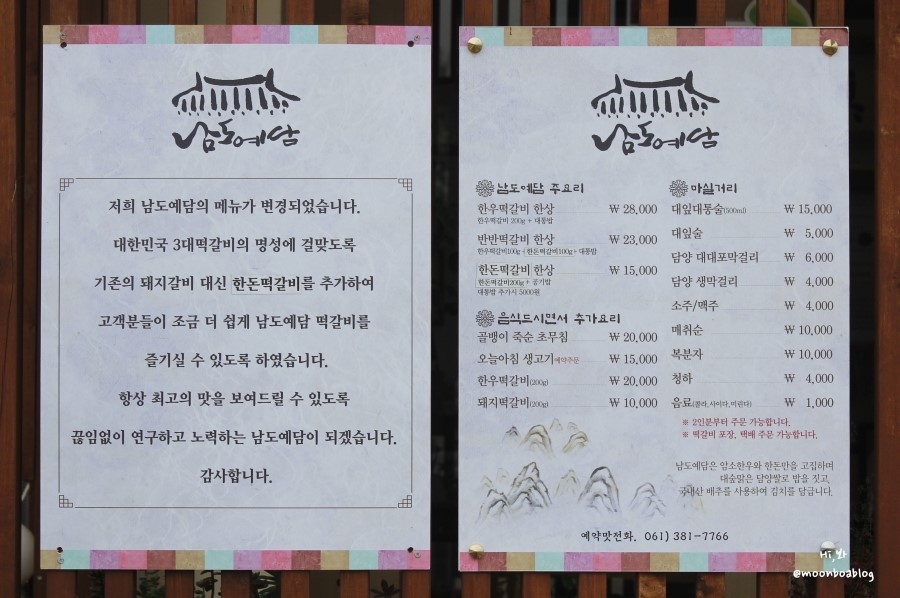 남도예담
저희 남도예담의 메뉴가 변경되었습니다.
대한민국 3대떡갈비의 명성에 걸맞도록
기존의 돼지갈비 대신 한돈떡갈비를 추가하여
고객분들이 조금 더 쉽게 남도예담 떡갈비를
즐기실 수 있도록 하였습니다.
항상 최고의 맛을 보여드릴 수 있도록
끊임없이 연구하고 노력하는 남도예담이 되겠습니다.
감사합니다.
남도예담
남도예담 주요리
한우떡갈비 한상 ₩ 28,000
한우떡갈비 200g + 대통밥
반반떡갈비 한상 ₩ 23,000
한우떡갈비100g + 한돈떡갈비100g + 대통밥
한돈떡갈비 한상 ₩ 15,000
한돈떡갈비200g + 공기밥
대통밥 추가시 5000원
음식드시면서 추가요리
골뱅이 죽순 초무침 ₩ 20,000
오늘아침 생고기예약주문 ₩ 15,000
한우떡갈비(200g) ₩ 20,000
돼지떡갈비(200g) ₩ 10,000
마실거리
대잎대통술(500ml) ₩ 15,000
대잎술 ₩ 5,000
담양 대대포막걸리 ₩ 6,000
담양 생막걸리 ₩ 4,000
소주/맥주 ₩ 4,000
매취순 ₩ 10,000
복분자 ₩ 10,000
청하 ₩ 4,000
음료(콜라,사이다,미린다) ₩ 1,000
※ 2인분부터 주문 가능합니다.
※ 떡갈비 포장, 택배 주문 가능합니다.
남도예담은 암소한우와 한돈만을 고집하며
대숲맑은 담양쌀로 밥을 짓고,
국내산 배추를 사용하여 김치를 담급니다.
예약맛전화. 061) 381-7766
Hi, 봐
@moonboablog